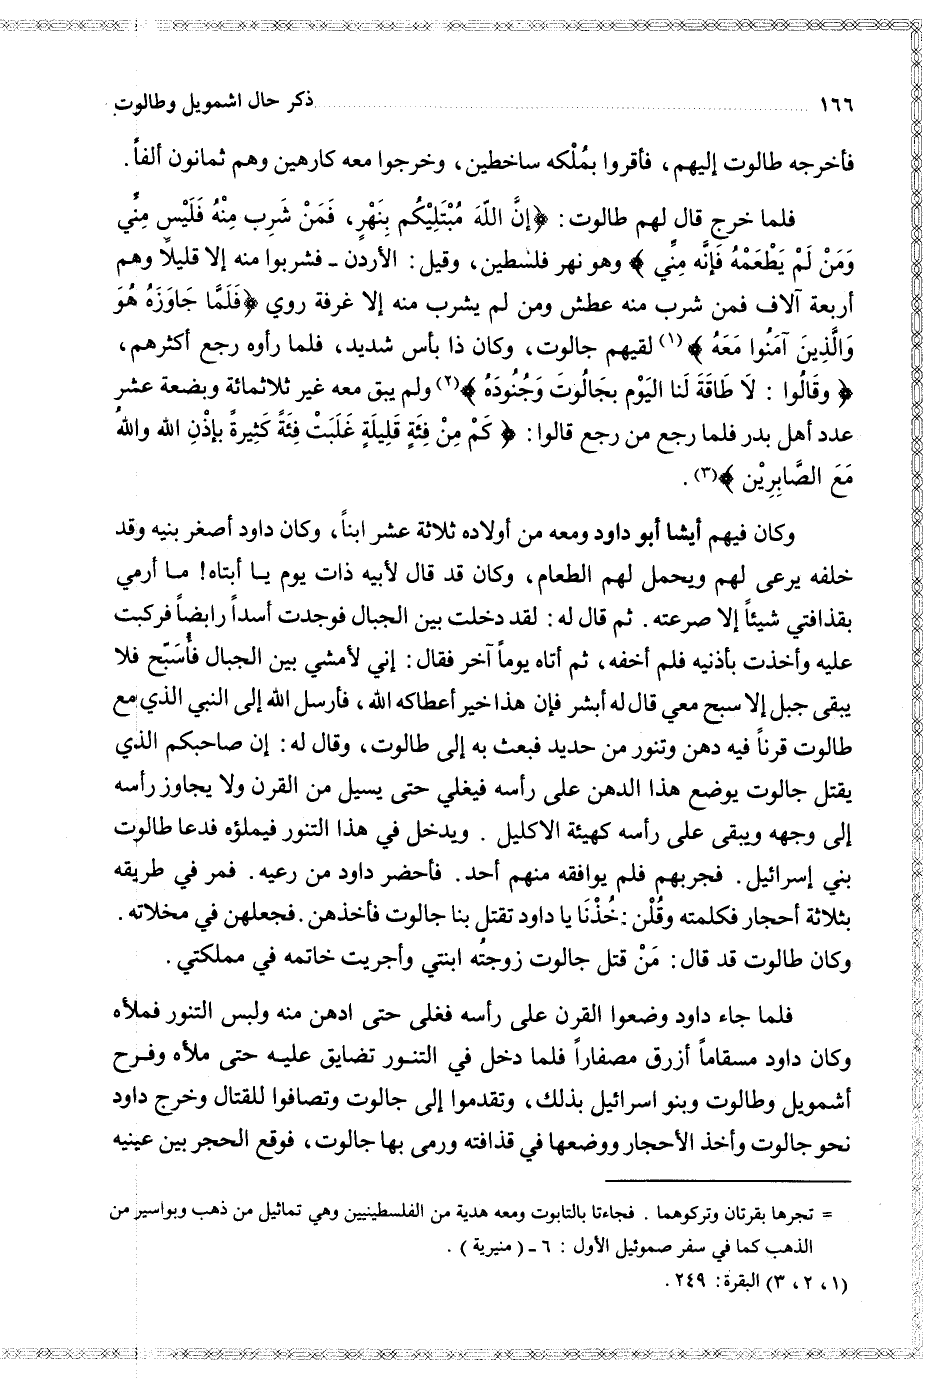 ١٦٦ ........................ ذكر حال اشمويل وطالوت
فأخرجه طالوت إليهم، فأقروا بمُلْكه ساخطين، وخرجوا معه كارهين وهم ثمانون ألفاً.
فلما خرج قال لهم طالوت: ﴿إنَّ اللّهَ مُبْتَلِيْكُم بِنَهْرٍ، فَمَنْ شَرِب مِنْهُ فَلَيْس مِنِّي
وَمَنْ لَمْ يَطْعَمْهُ فَإنَّه مِنِّي﴾ وهو نهر فلسطين، وقيل: الأردن ـ فشربوا منه إلا قليلاً وهم
أربعة آلاف فمن شرب منه عطش ومن لم يشرب منه إلا غرفة روي ﴿فَلَمَّا جَاوَزَهُ هُوَ
وَالَّذِينَ آمَنُوا مَعَهُ﴾(١) لقيهم جالوت، وكان ذا بأس شديد، فلما رأوه رجع أكثرهم،
﴿وقَالُوا: لاَ طَاقَةَ لَنا اليَوْم بجَالُوتَ وَجُنُودَهُ﴾(٢) ولم يبق معه غير ثلاثمائة وبضعة عشر
عدد أهل بدر فلما رجع من رجع قالوا: ﴿كَمْ مِنْ فِئَةٍ قَلِيلَةٍ غَلَبَتْ فِئَةً كَثِيرةً بإذْنِ الله واللهُ
مَعَ الصَّابِرِيْن﴾(٣).
وكان فيهم أيشا أبو داود ومعه من أولاده ثلاثة عشر ابناً، وكان داود أصغر بنيه وقد
خلفه يرعى لهم ويحمل لهم الطعام، وكان قد قال لأبيه ذات يوم يا أبتاه! ما أرمي
بقذافتي شيئاً إلا صرعته. ثم قال له: لقد دخلت بين الجبال فوجدت أسداً رابضاً فركبت
عليه وأخذت بأذنيه فلم أخفه، ثم أتاه يوماً آخر فقال: إني لأمشي بين الجبال فأُسَبّح فلا
يبقى جبل إلا سبح معي قال له أبشر فإن هذا خير أعطاكه الله، فأرسل الله إلى النبي الذي مع
طالوت قرناً فيه دهن وتنور من حديد فبعث به إلى طالوت، وقال له: إن صاحبكم الذي
يقتل جالوت يوضع هذا الدهن على رأسه فيغلي حتى يسيل من القرن ولا يجاوز رأسه
إلى وجهه ويبقى على رأسه كهيئة الاكليل. ويدخل في هذا التنور فيملؤه فدعا طالوت
بني إسرائيل. فجربهم فلم يوافقه منهم أحد. فأحضر داود من رعيه. فمر في طريقه
بثلاثة أحجار فكلمته وقُلْن: خُذْنَا يا داود تقتل بنا جالوت فأخذهن. فجعلهن في مخلاته.
وكان طالوت قد قال: مَنْ قتل جالوت زوجتُه ابنتي وأجريت خاتمه في مملكتي.
فلما جاء داود وضعوا القرن على رأسه فغلى حتى ادهن منه ولبس التنور فملأه
وكان داود مسقاماً أزرق مصفاراً فلما دخل في التنور تضايق عليه حتى ملأه وفرح
أشمويل وطالوت وبنو اسرائيل بذلك، وتقدموا إلى جالوت وتصافوا للقتال وخرج داود
نحو جالوت وأخذ الأحجار ووضعها في قذافته ورمى بها جالوت، فوقع الحجر بين عينيه
= تجرها بقرتان وتركوهما. فجاءتا بالتابوت ومعه هدية من الفلسطينيين وهي تماثيل من ذهب وبواسير من
الذهب كما في سفر صموئيل الأول: ٦ ـ (منيرية).
(١، ٢، ٣) البقرة: ٢٤٩.